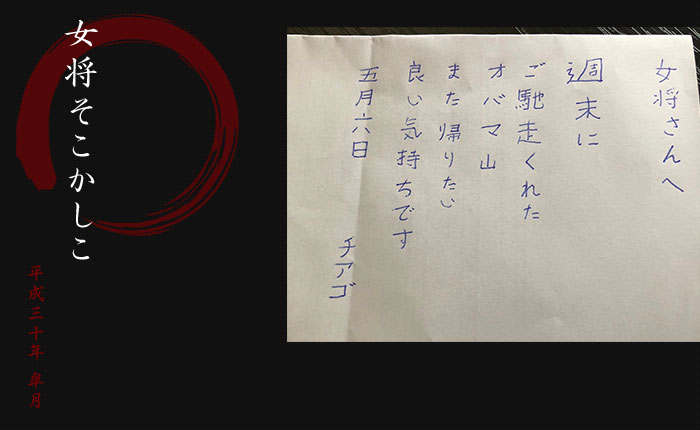 女将そこかしこ
平成三十年 皐月
女将さんへ
週末に
ご馳走くれた
オバマ山
また帰りたい
良い気持ちです
五月六日
チアゴ